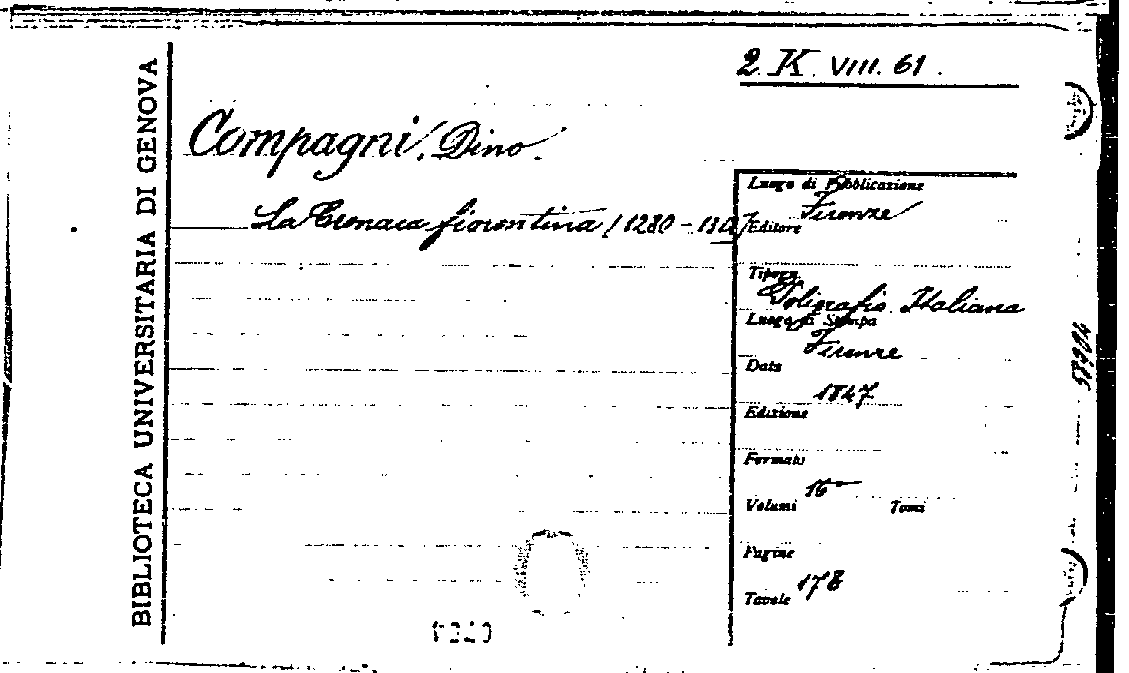 BIBLIOTECA UNIVERSITARIA DI GENOVA
2. K. VIII. 61.
Compagni, Dino.
La Cronaca fiorentina (1280 - 
Luogo di Pubblicazione
Firenze
Editore
Tipogr.
Poligrafia Italiana
Luogo di Stampa
Firenze
Data
1847
Edizione
Formato
16°
Volumi Tomi
Pagine
178
Tavole